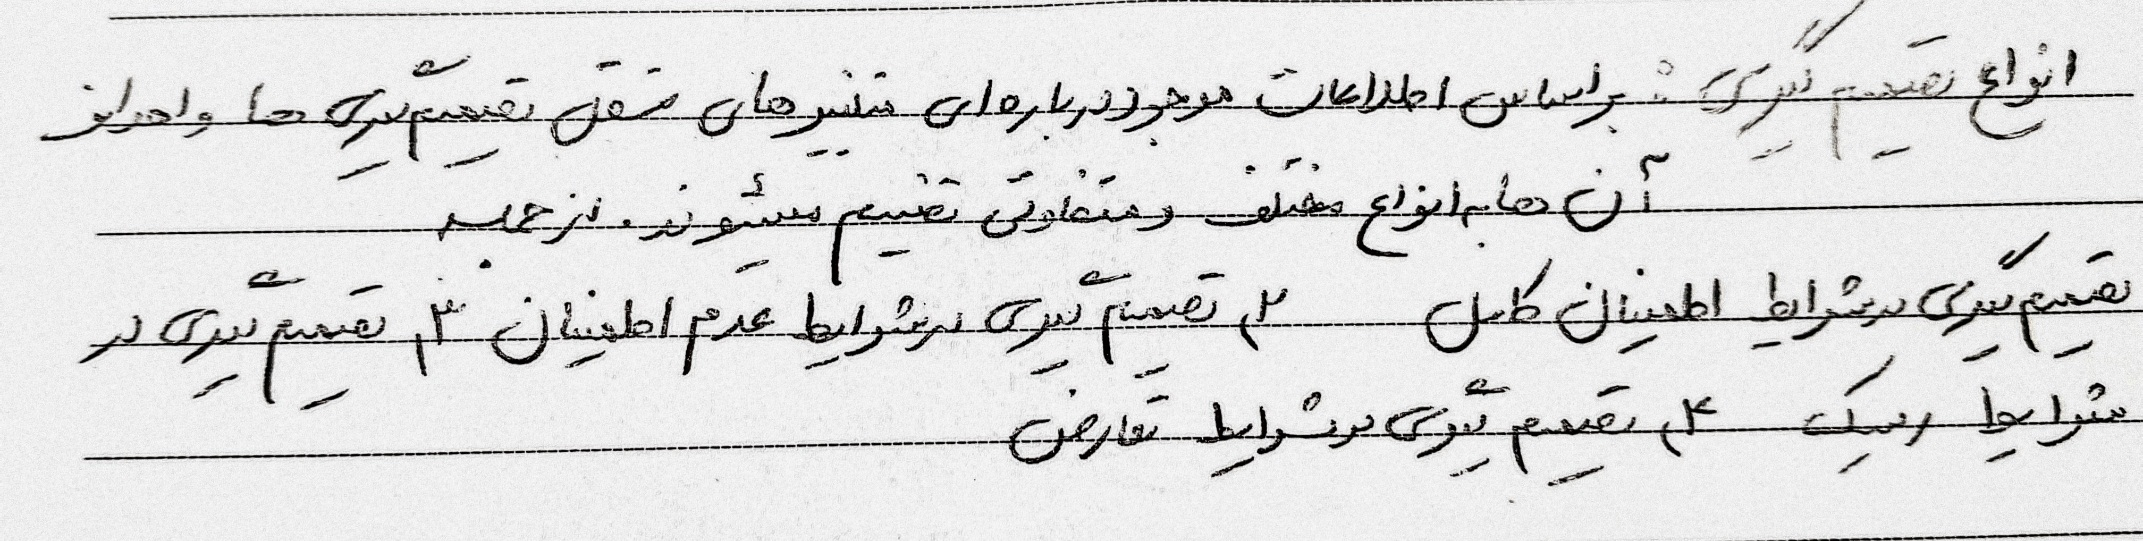 انواع تصمیم گیری : براساس اطلاعات موجود درباره‌ای متغییرهای مستقل تصمیم گیری ها و اهداف
آن ها به انواع مختلف و متفاوتی تقسیم میشوند. از جمله
تصمیم گیری در شرایط اطمینان کامل ۲. تصمیم گیری در شرایط عدم اطمینان ۳. تصمیم گیری در
شرایط ریسک ۴. تصمیم گیری در شرایط تعارض